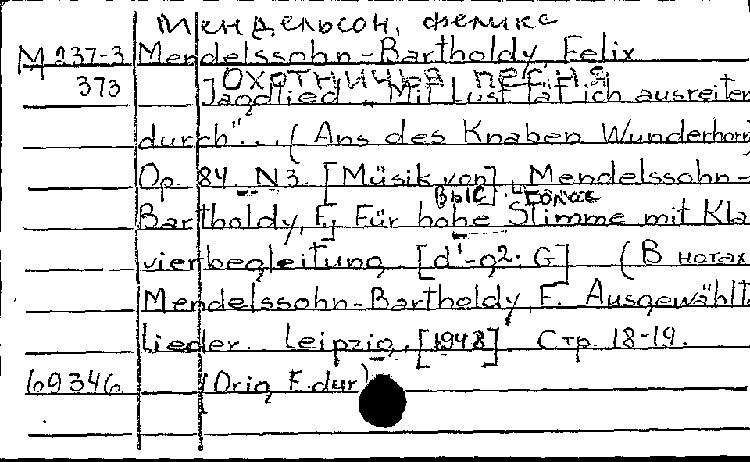 Мендельсон, Феликс
М 237-3 Mendelssohn-Bartholdy, Felix
Охотничья песня
373 Jagdlied "Mit Lust tät ich ausreiten
durch"... (Ans des Knaben Wunderhorn)
Op. 84 N3. [Müsik von] Mendelssohn-
Выс. голос
Bartholdy, F. Für hohe Stimme mit Kla
vierbegleitung [d¹-g²· G] (В нотах
Mendelssohn-Bartholdy F. Ausgewählt
Lieder. Leipzig, [1948] Стр. 18-19.
69346 (Orig F.dur)